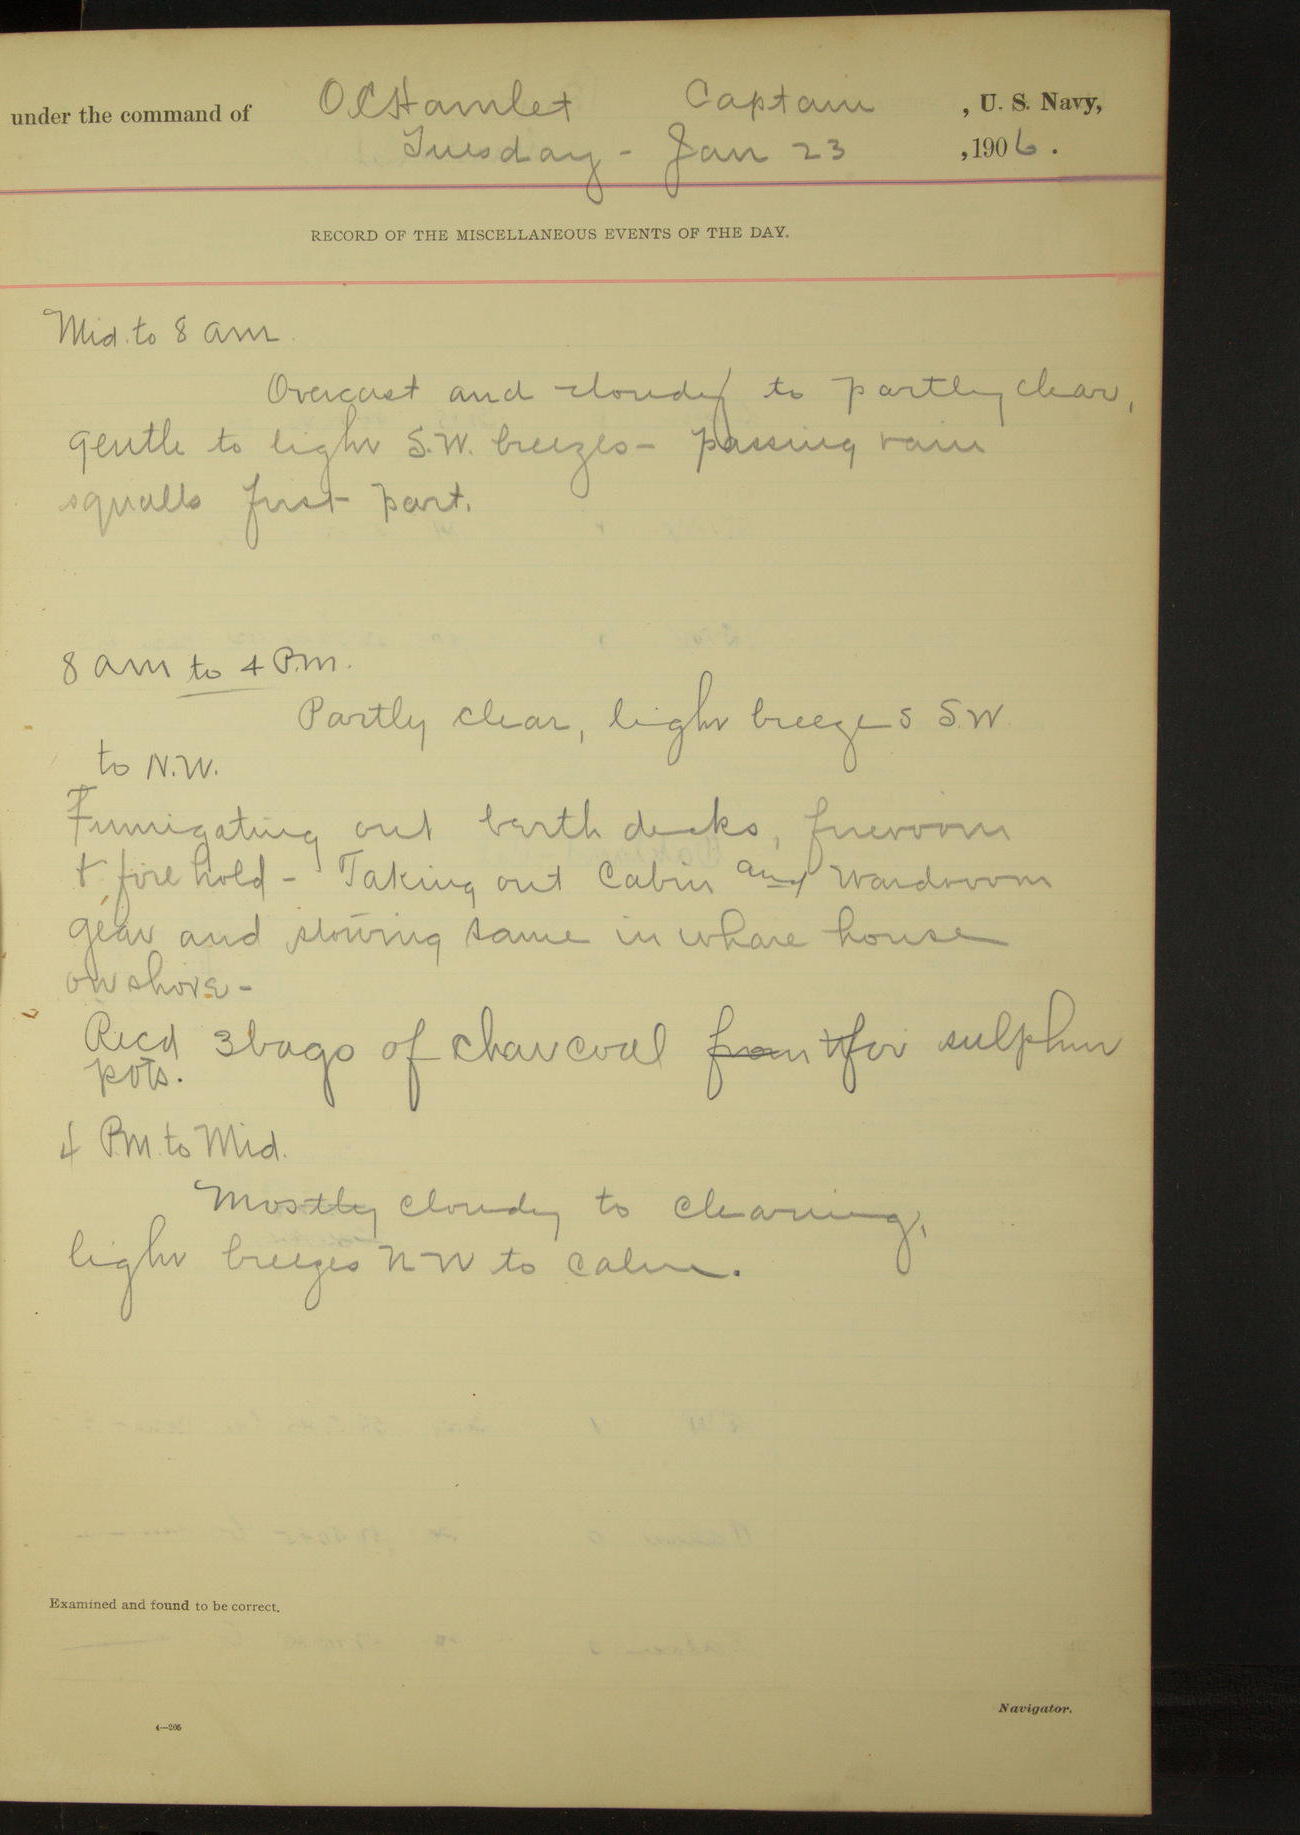 under the command of O C Hamlet Captain , U. S. Navy,
Tuesday - Jan 23 , 1906.
RECORD OF THE MISCELLANEOUS EVENTS OF THE DAY.
Mid. to 8 am
Overcast and cloudy to partly clear,
gentle to light S.W. breezes - passing rain
squalls first part.
8 am to 4 P.m.
Partly clear, light breezes S.W
to N.W.
Fumigating out berth decks, fireroom
+ fire hold - Taking out Cabin and Wardroom
gear and stowing same in whare house
on shore -
Recd 3 bags of charcoal from for sulphur
pots.
4 P.M. to Mid.
Mostly cloudy to clearing,
light breezes N-W to calm.
Examined and found to be correct.
Navigator.
4—205